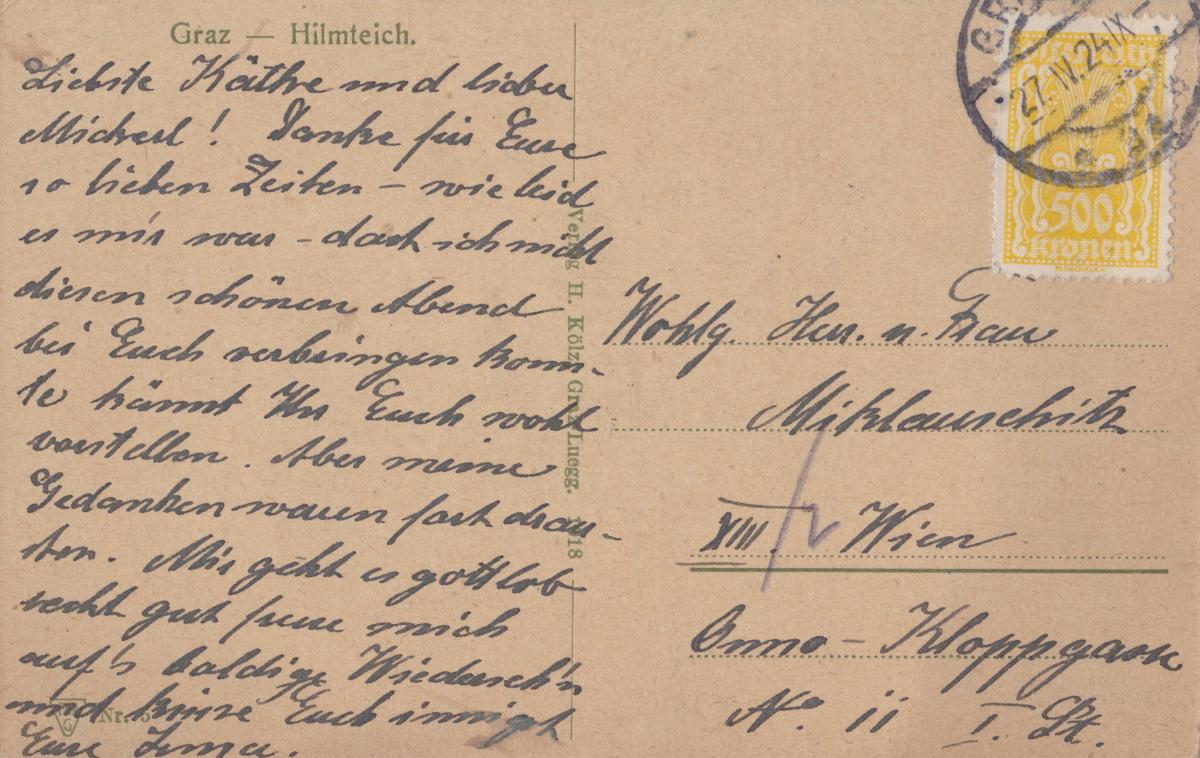 Graz — Hilmteich.
Liebste Käthe und lieber
Micherl! Danke für Eure
so lieben Zeilen – wie leid
es mir war – dass ich nicht
diesen schönen Abend
bei Euch verbringen konn-
te könnt Ihr Euch wohl
vorstellen. Aber meine
Gedanken waren fort drau-
sen. Mir geht es gottlob
recht gut freue mich
auf's baldige Wiederseh'n
und küsse Euch innigst
Eure Irma.
Nr. 5
Verlag H. Kölz, Graz-Luegg. 1918
27.IV.24
500
Kronen
Wohlg. Herr. u. Frau
Miklauschitz
XIII. Wien
Onno-Kloppgasse
No 11 I. St.